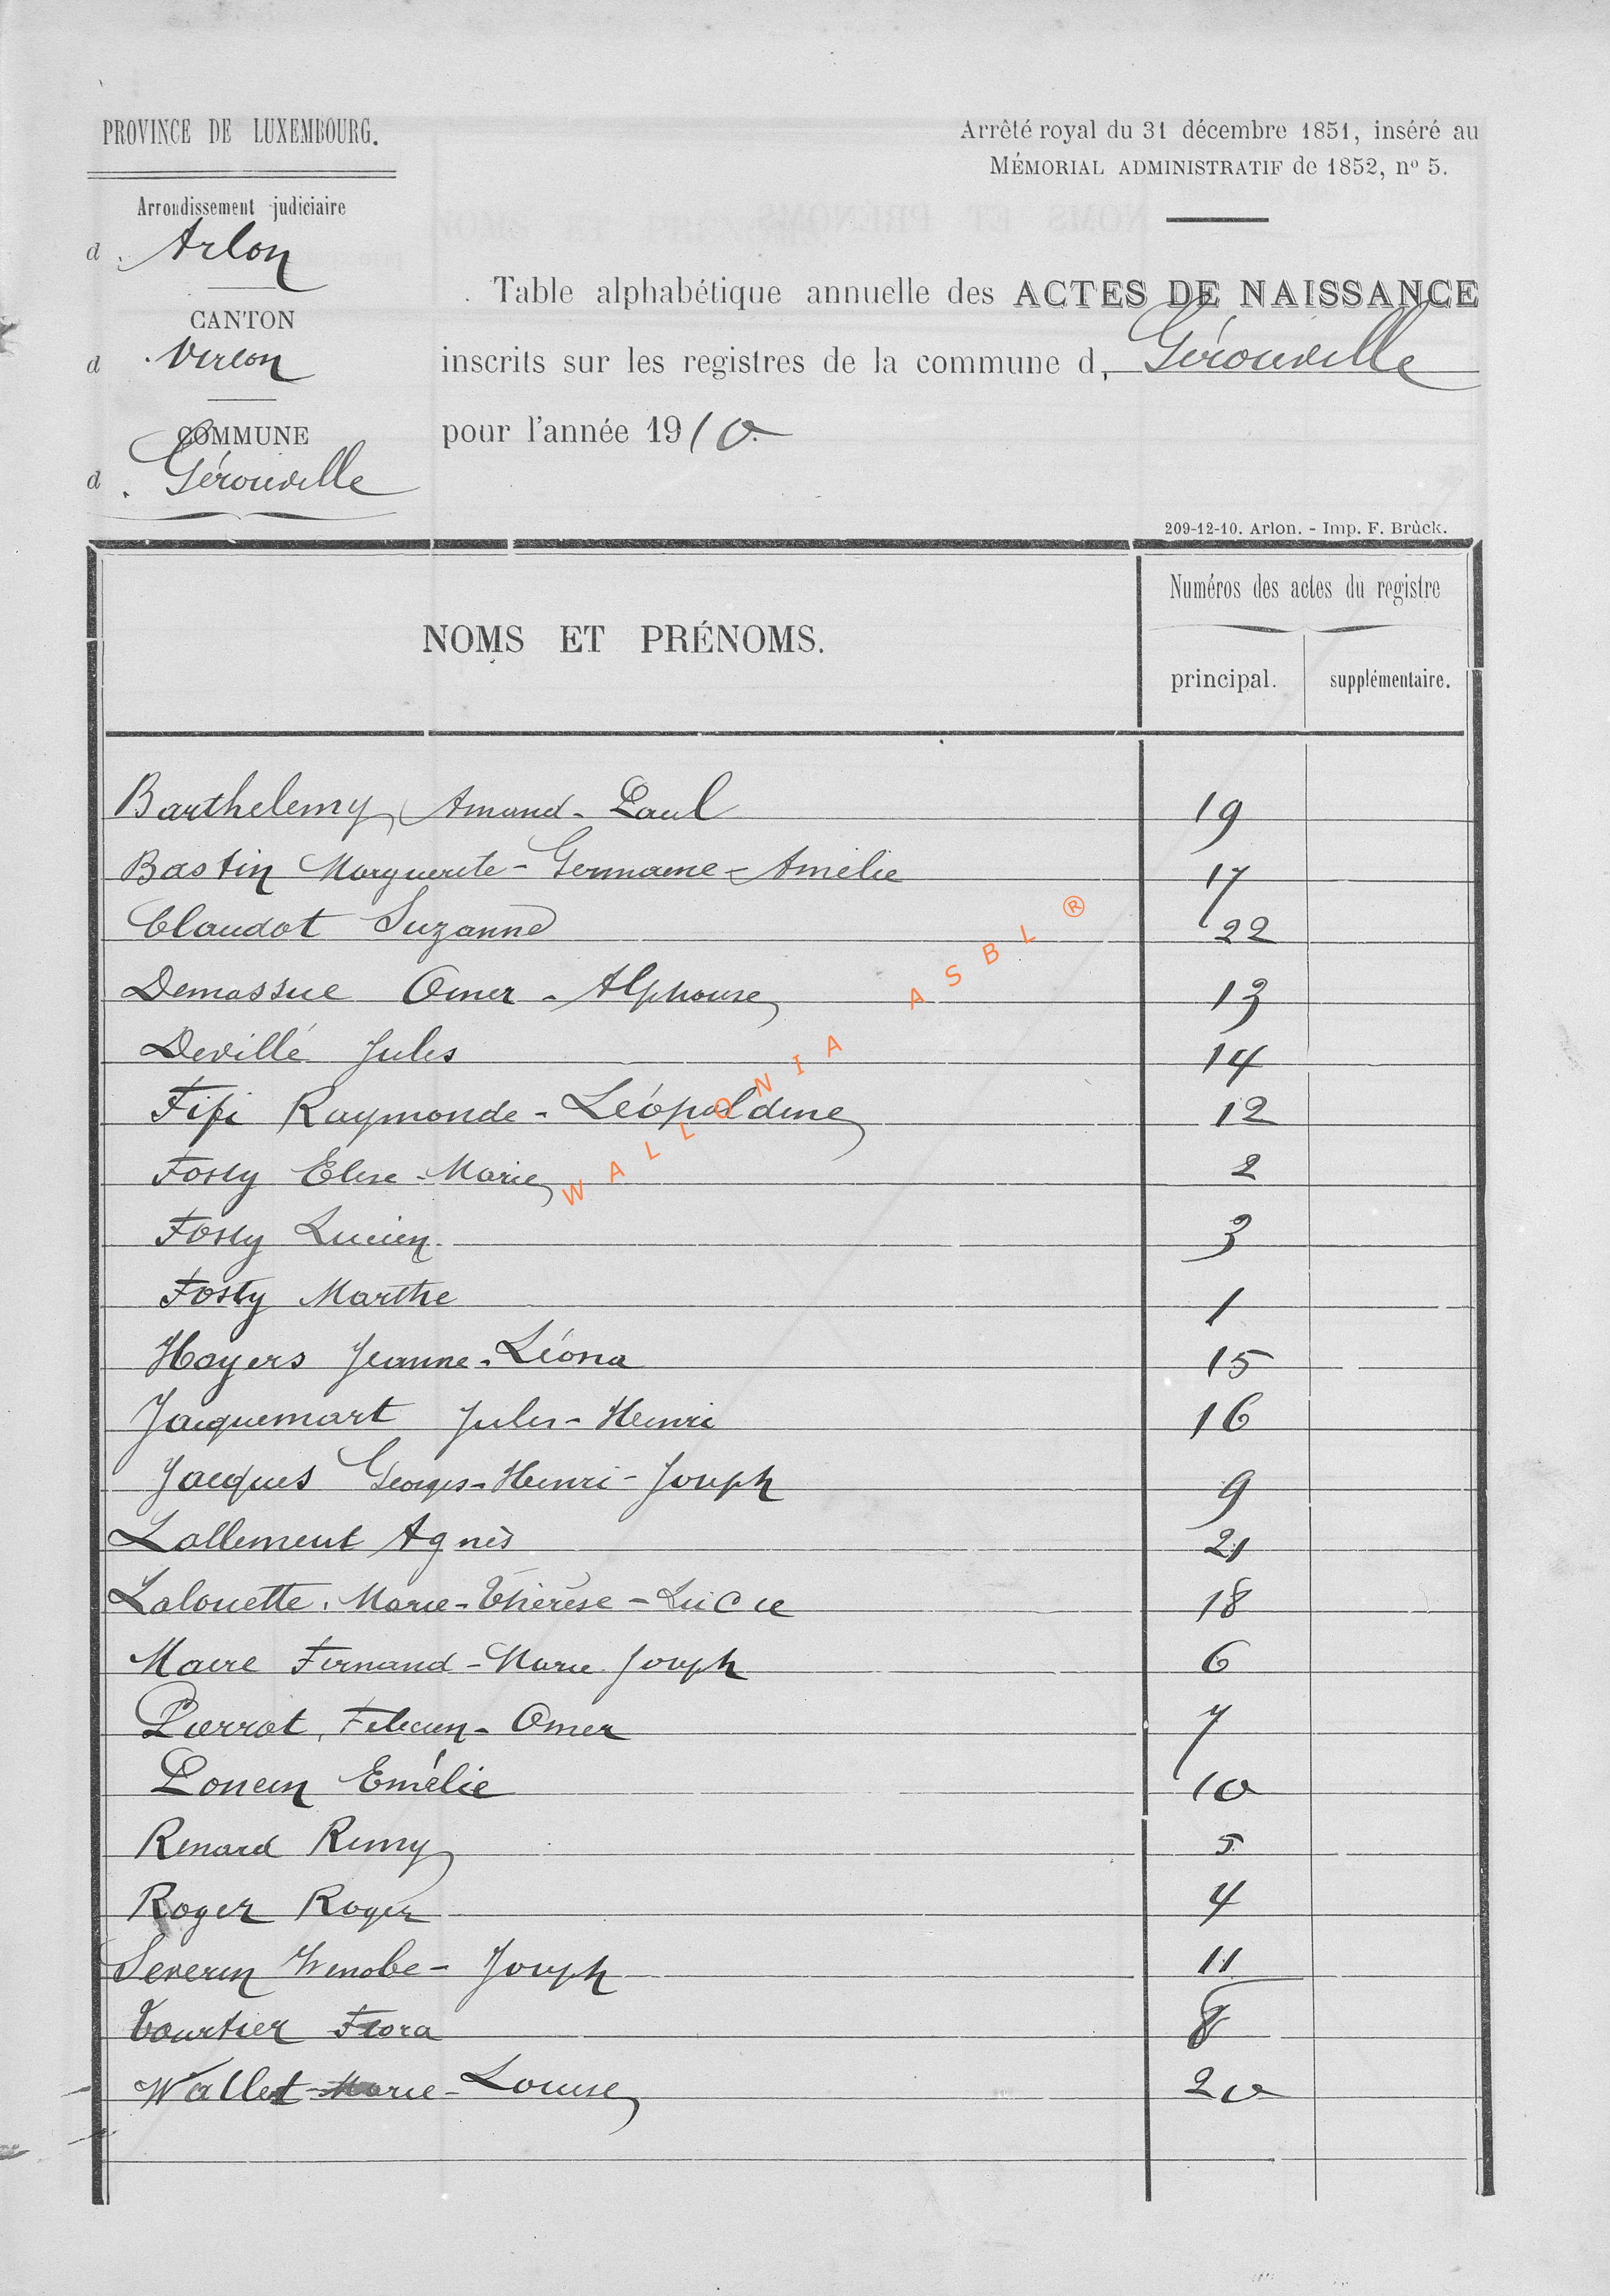 PROVINCE DE LUXEMBOURG.
Arrêté royal du 31 décembre 1851, inséré au
MÉMORIAL ADMINISTRATIF de 1852, nº 5.
Arrondissement judiciaire
d. Arlon
CANTON
d. Virton
COMMUNE
d. Gérouville
Table alphabétique annuelle des ACTES DE NAISSANCE
inscrits sur les registres de la commune d, Gérouville
pour l'année 1910.
209-12-10. Arlon. - Imp. F. Brück.
NOMS ET PRÉNOMS.
Numéros des actes du registre
principal. supplémentaire.
Barthelemy, Amand-Paul 19
Bastin Marguerite-Germaine-Amélie 17
Claudot Suzanne 22
Demassue Omer-Alphonse 13
Devillé Jules 14
Fifi Raymonde-Léopoldine 12
Fosty Elise-Marie 2
Fosty Lucien 3
Fosty Marthe 1
Hayers Jeanne-Léona 15
Jacquemart Jules-Henri 16
Jacques Georges-Henri-Joseph 9
Lallement Agnès 21
Lalouette. Marie-Thérèse-Lucie 18
Maire Fernand-Marie Joseph 6
Pierrot, Félicien-Omer 7
Poncin Emélie 10
Renard Remy 5
Roger Roger 4
Severin Joseph 11
Tourtier Flora 8
Wallet-Marie-Louise 20
WALLONIA ASBL ®